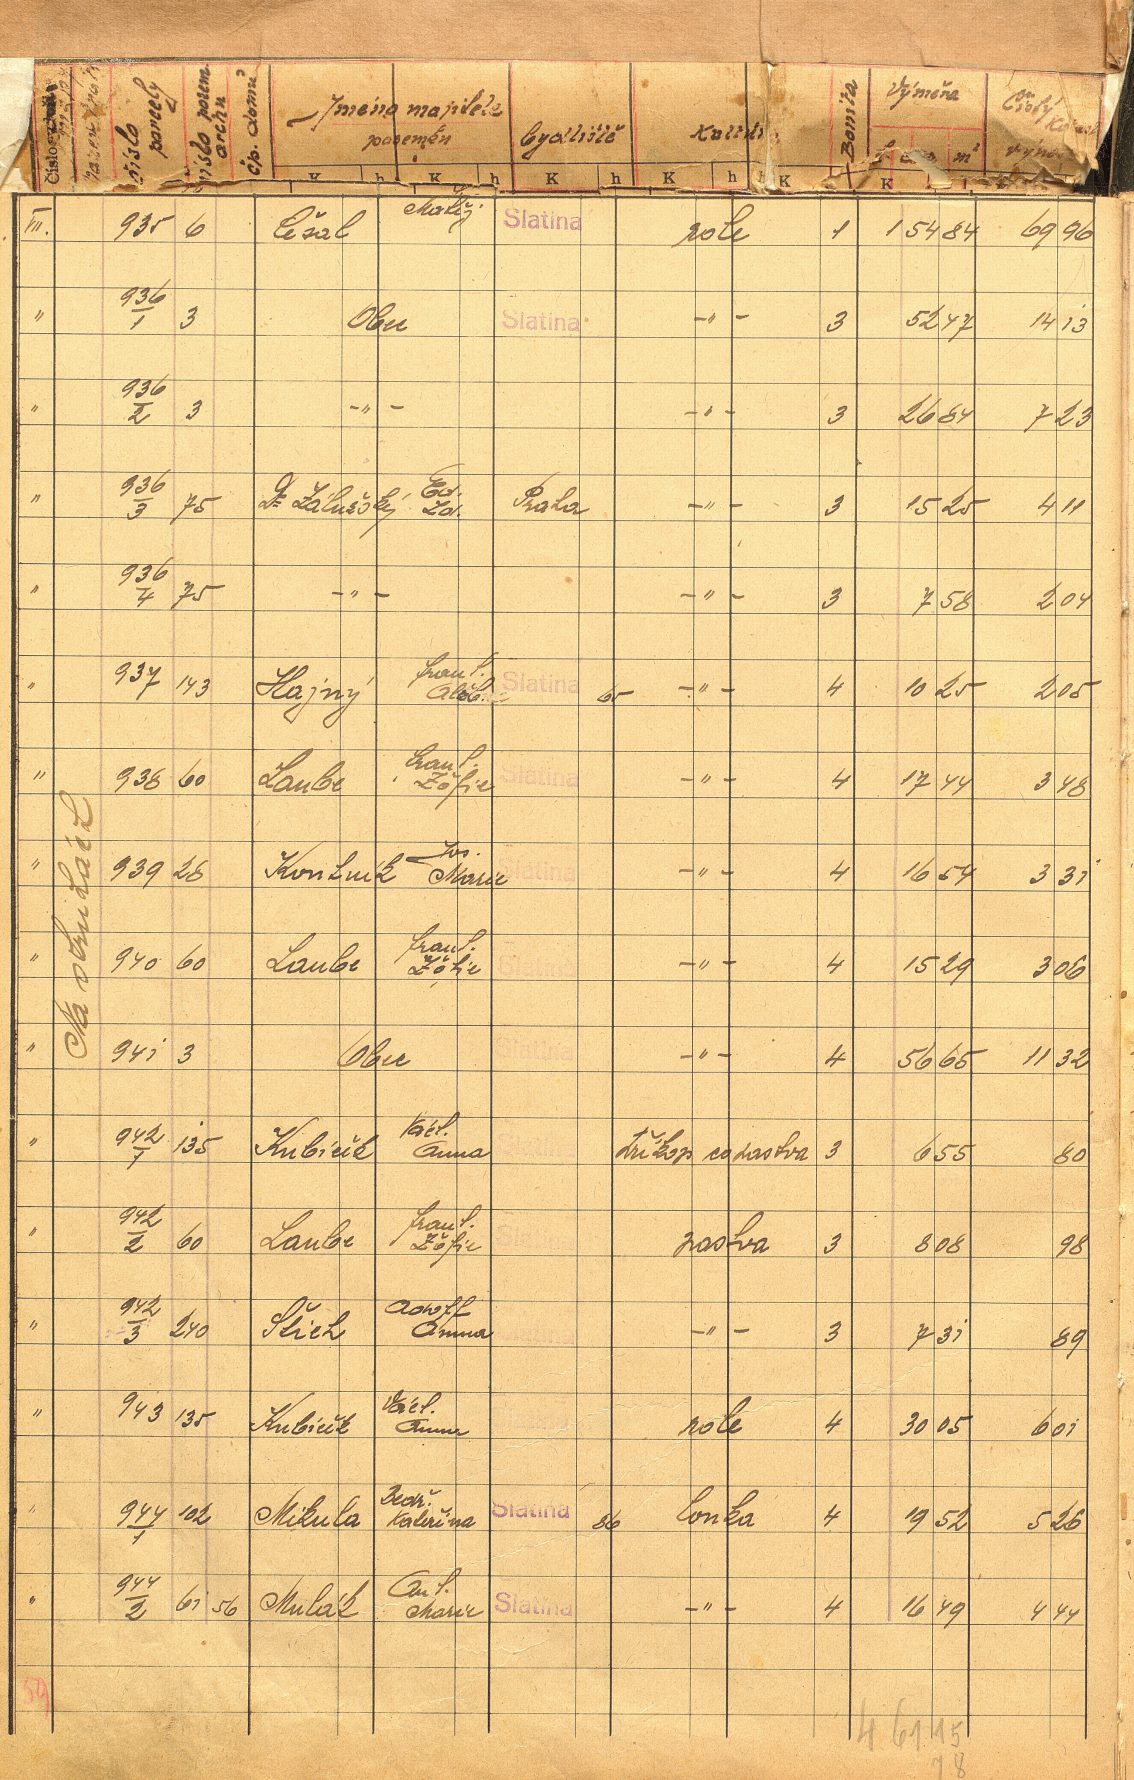 číslo parcely
číslo pozem. archu
čp. domu
Jméno majitele pozemku
bydliště
Bonita
Výměra
m²
Čistý
K h K h K h K h K K
VII. 935 6 Češal Matěj Slatina role 1 1 54 84 69 96
" 936/1 3 Obec Slatina -"- 3 52 47 14 13
" 936/2 3 -"- -"- 3 26 84 7 23
" 936/3 75 Dr Zálužský Ed. Zd. Praha -"- 3 15 25 4 11
" 936/4 75 -"- -"- 3 7 58 2 04
" 937 143 Hajný Frant. Slatina 65 -"- 4 10 25 2 05
" 938 60 Laube Frant. Žofie Slatina -"- 4 17 44 3 48
" 939 28 Konhník Jos. Marie Slatina -"- 4 16 54 3 31
" 940 60 Laube Frant. Žofie Slatina -"- 4 15 29 3 06
" 941 3 Obec Slatina -"- 4 56 65 11 32
" 942/1 135 Kubíček Václ. Anna Slatina příkop co pastva 3 6 55 80
" 942/2 60 Laube Frant. Žofie Slatina pastva 3 8 08 98
" 942/3 240 Štich Adolf Anna Slatina -"- 3 7 31 89
" 943 135 Kubíček Václ. Anna Slatina role 4 30 05 6 01
" 944/1 102 Mikula Bedř. Kateřina Slatina 86 louka 4 19 52 5 26
" 944/2 61 56 Mulák Ant. Marie Slatina -"- 4 16 49 4 44
59
4 61 15
78